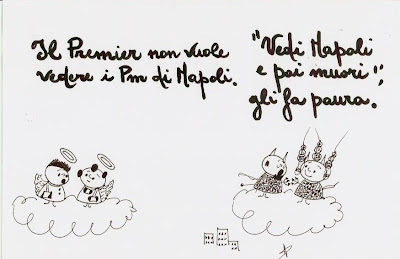 Il Premier non vuole
vedere i Pm di Napoli.
"Vedi Napoli
e poi muori",
gli fa paura.